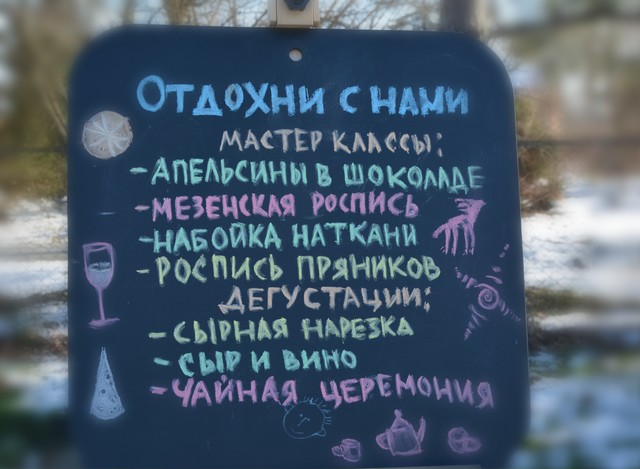 ОТДОХНИ С НАМИ
МАСТЕР КЛАССЫ:
-АПЕЛЬСИНЫ В ШОКОЛАДЕ
-МЕЗЕНСКАЯ РОСПИСЬ
-НАБОЙКА НАТКАНИ
-РОСПИСЬ ПРЯНИКОВ
ДЕГУСТАЦИИ:
-СЫРНАЯ НАРЕЗКА
-СЫР И ВИНО
-ЧАЙНАЯ ЦЕРЕМОНИЯ